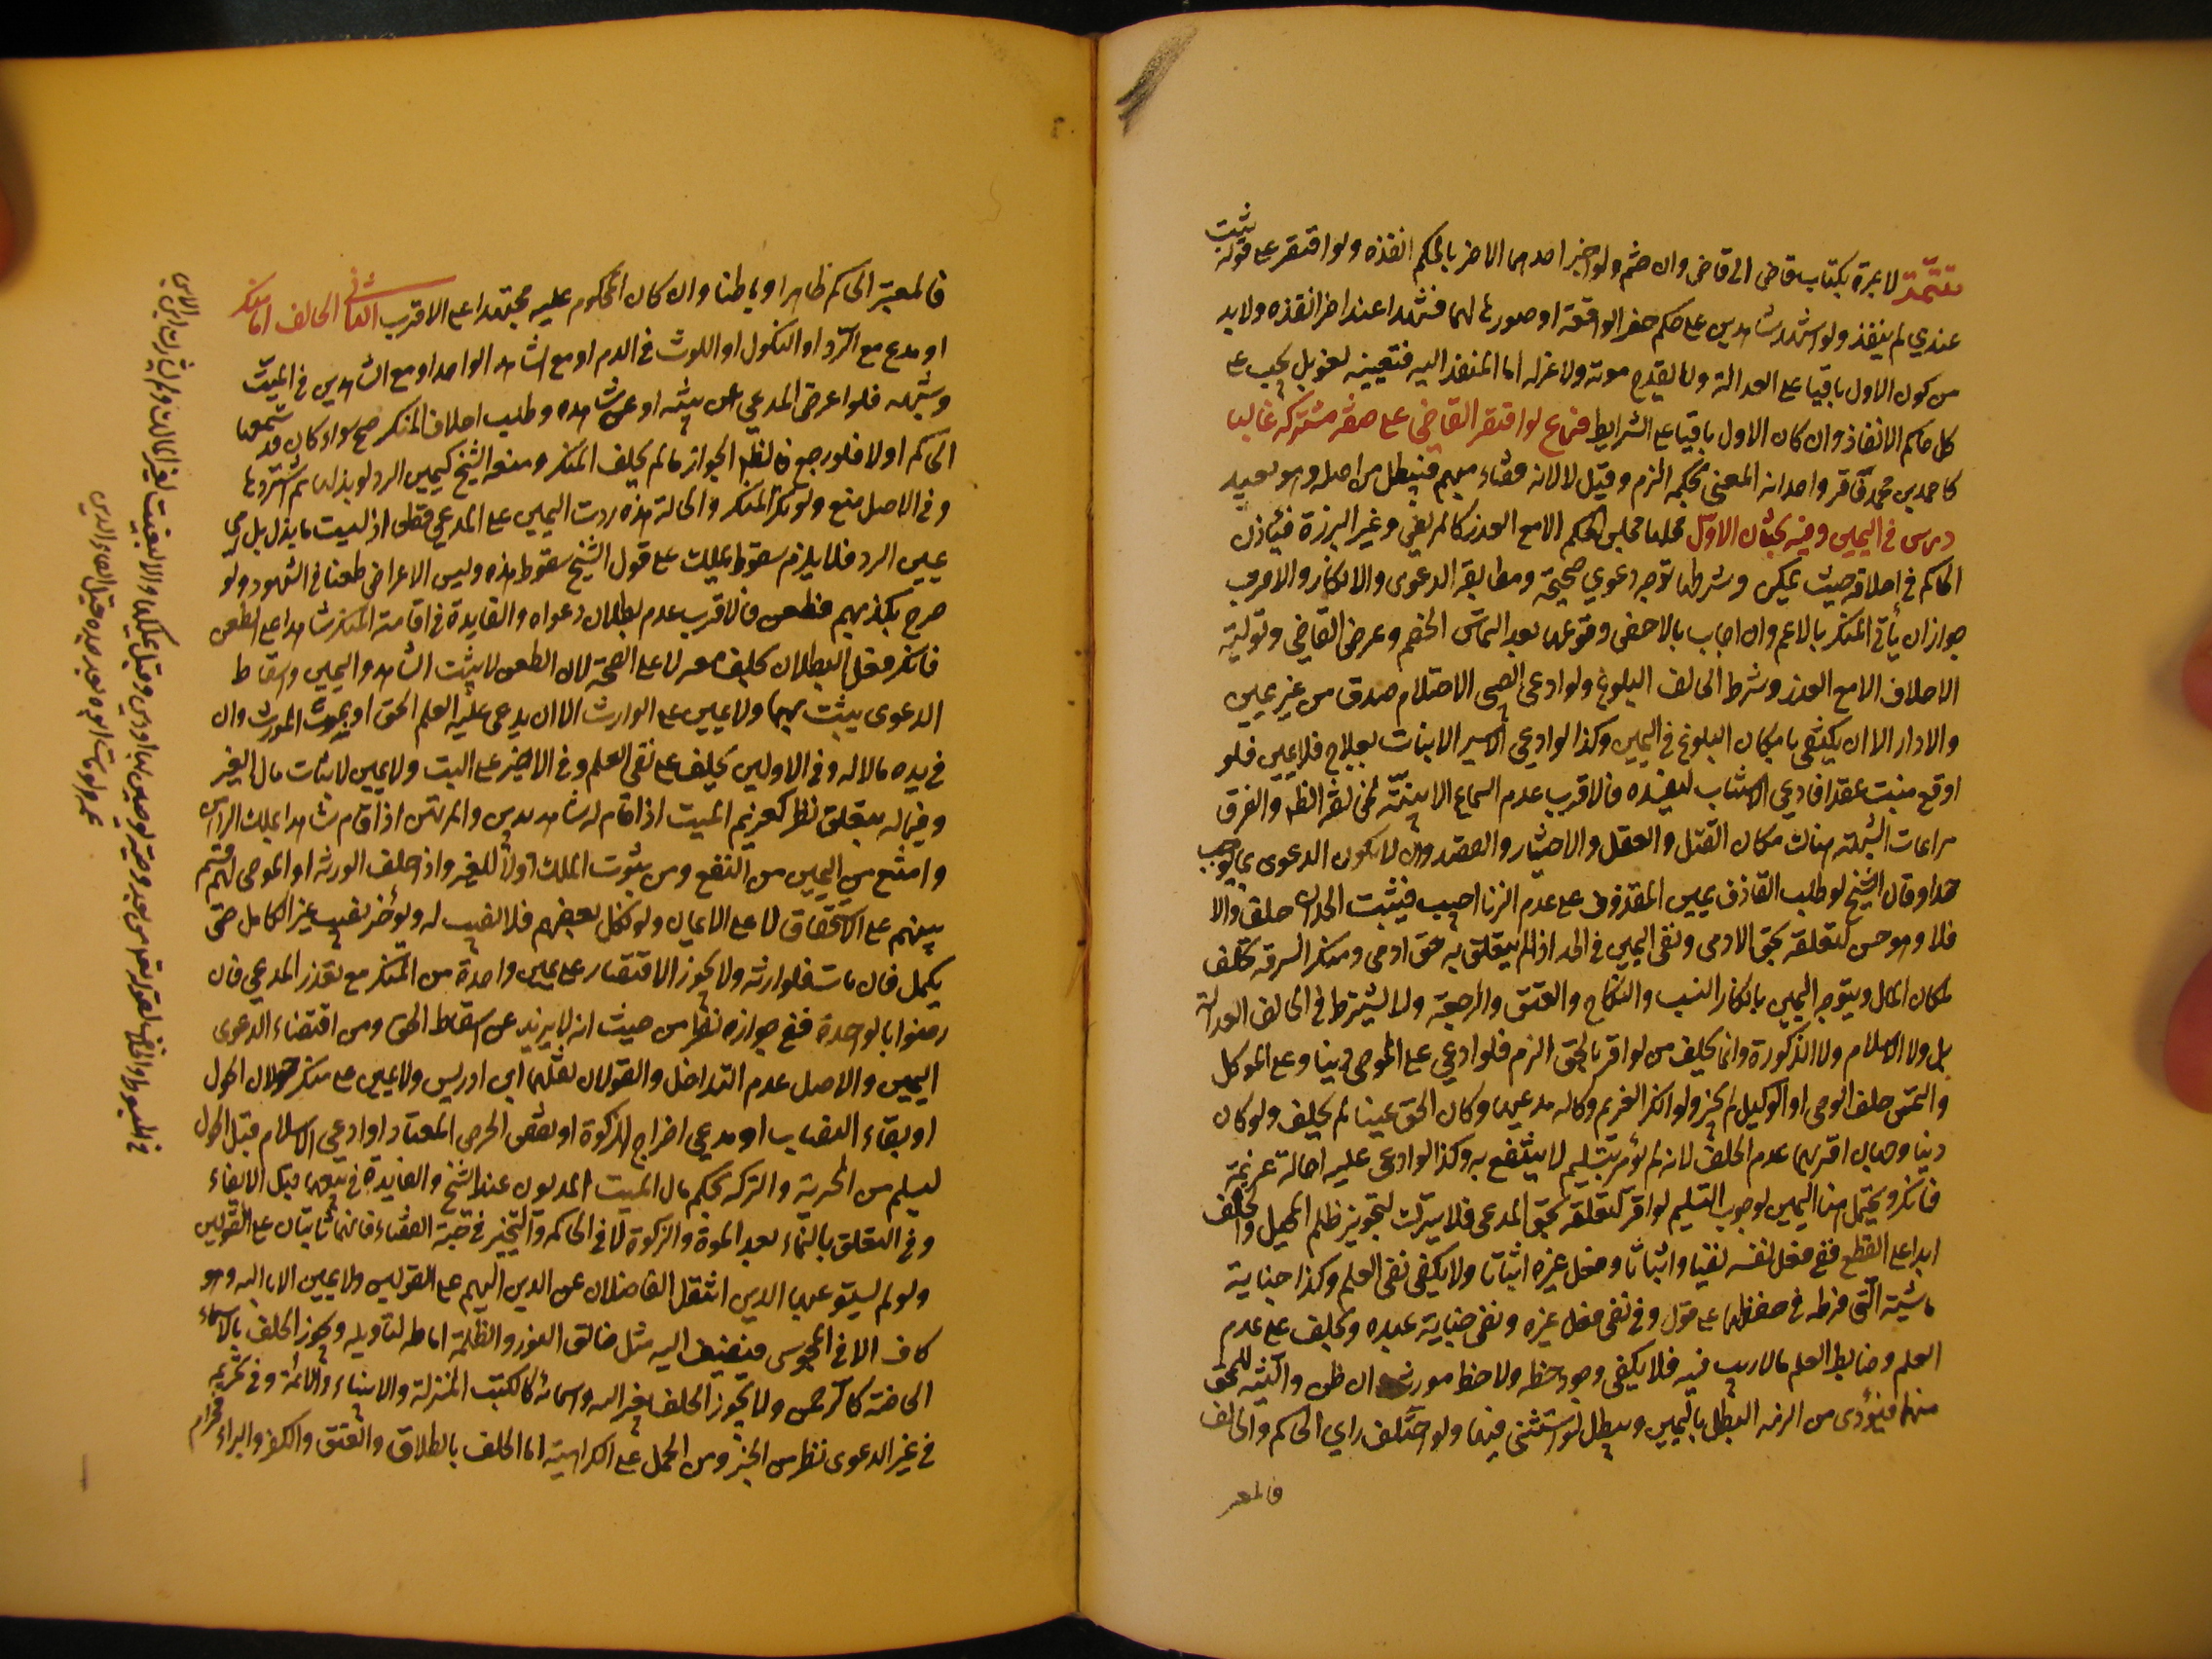 تتمة لا عبرة بكتاب قاض الى قاض وان ختم ولو اخبر احدهما الاخر بالحكم انفذه ولو اقتصر على قوله ثبت
عندي لم ينفذ ولو اشهد شاهدين على حكم حضر الواقعة او صورها لهما فشهدا عند اخر انفذه ولا بد
من كون الاول باقيا على العدالة ولا يقدح موته ولا عزله اما المنفذ اليه فتعيينه لغو بل يجب على
كل حاكم الانفاذ وان كان الاول باقيا على الشرايط فرع لو اقتصر القاضي على صفة مشتركة غالبا
كاحمد بن محمد فاقر واحد انه المعنى بحكمه الزم وقيل لا لانه قضاء مبهم فيبطل من اصله وهو بعيد
درس في اليمين وفيه بحثان الاول محلها مجلس الحكم الا مع العذر كالمريض وغير البرزة فيأذن
الحاكم في احلافه حيث يمكن وشرطها توجه دعوى صحيحة ومطابقة الدعوى والانكار والاقرب
جواز ان يأتي المنكر بالاعم وان اجاب بالاخص وقوعها بعد التماس الخصم وعرض القاضي وتوليه
الاحلاف الا مع العذر وشرط الحالف البلوغ ولو ادعى الصبى الاحتلام صدق من غير يمين
والا دار الا ان يكتفى بامكان البلوغ في اليمين وكذا لو ادعى الاسير الانبات بعلاج فلا يمين فلو
اوقع منبت عقدا فادعى الاستنبات ليفسده فالاقرب عدم السماع الا ببينة لمخالفة الظ والفرق
مراعات الشبهة هناك مكان القتل والعقل والاختيار والقصد وان لا يكون الدعوى بما يوجب
حدا وقال الشيخ لو طلب القاذف يمين المقذوف على عدم الزنا اجيب فيثبت الحد ان حلف والا
فلا وهو حسن لتعلقه بحق الادمى ونفى اليمين في الحد اذا لم يتعلق به حق ادمى ومنكر السرقة يحلف
لمكان المال ويتوجه اليمين بانكار النسب والنكاح والعتق والرجعة ولا يشترط في الحالف العدالة
بل ولا الاسلام ولا الذكورة وانما يحلف من لو اقر بالحق الزم فلو ادعى على الموصى دينا وعلى الموكل
والتمس حلف الوصى او الوكيل لم يجز ولو انكر الغريم وكالة مدعيها وكان الحق عينا لم يحلف ولو كان
دينا وجهان اقربهما عدم الحلف لانه لم يؤمر بتسليم لا ينتفع به وكذا لو ادعى عليه احالة غريمة
فانكر ويحتمل هنا اليمين لوجوب التسليم لو اقر لتعلقه بحق المدعى فلا يترك لتجويز ظلم المحيل والحلف
ابدا على القطع ففى فعل نفسه نفيا واثباتا وفعل غيره اثباتا ولا يكفى نفى العلم وكذا جناية
ماشيته التى فرط في حفظها على قول وفي نفى فعل غيره ونفى جناية عبده يحلف على عدم
العلم وضابط العلم ما لا ريب فيه فلا يكفى وجود خطه ولا خط مورثه وان ظن والنية للمحق
منهما فيؤدى من الزمه المبطل باليمين ويبطل لو استثنى فيها ولو اختلف راى الحاكم والحالف
فالمعتبر
فالمعتبر الحاكم ظاهرا وباطنا وان كان المحكوم عليه مجتهدا على الاقرب الثاني الحالف اما منكر
او مدع مع الرد او النكول او اللوث في الدم او مع الشاهد الواحد او مع الشاهدين في الميت
وشبهه فلو اعرض المدعي عن بينته او عن شاهده وطلب احلاف المنكر صح سواء كان قد شهدها
الحاكم او لا فلو رجع فالظ الجواز ما لم يحلف المنكر ومنعه الشيخ كيمين الرد لو بذلها ثم استردها
وفي الاصل منع ولو نكل المنكر والحالة هذه ردت اليمين على المدعي قطعا اذ ليست ما بذل بل هي
يمين الرد فلا يلزم سقوط تلك على قول الشيخ سقوط هذه وليس الاعراض طعنا في الشهود ولو
صرح بتكذيبهم فطعن فالاقرب عدم بطلان دعواه والفايدة في اقامة المنكر شاهدا على الطعن
فان نقل البطلان يحلف معه لا على الصحة لان الطعن لا يثبت الشاهد واليمين واسقاط
الدعوى يثبت بهما ولا يمين على الوارث الا ان يدعى عليه العلم بالحق او بموت المورث وان
في يده مالا له وفي الاولين يحلف على نفى العلم وفي الاخير على البت ولا يمين لاثبات مال الغير
وفيما له به تعلق نظر كغريم الميت اذا قام له شاهد بدين والمرتهن اذا اقام شاهدا بملك الراهن
وامتنع من اليمين من النفع ومن ثبوت الملك اولا للغير واذا حلف الورثة او الموصى لهم قسم
بينهم على الاستحقاق لا على الايمان ولو نكل بعضهم فلا نصيب له ولو اخر نصيب غير الكامل حتى
يكمل فان مات فلوارثه ولا يجوز الاقتصار على يمين واحدة من المنكر مع تعدد المدعي فان
رضوا بالواحدة ففى جوازه نظر من حيث انه لا يزيد عن اسقاط الحق ومن اقتضاء الدعوى
اليمين والاصل عدم التداخل والقولان نقلهما ابن ادريس ولا يمين على منكر حولان الحول
او بقاء النصاب او مدعي اخراج الزكوة او نقص الخرص المعتاد او ادعى الاسلام قبل الحول
ليسلم من الجزية والتركة بحكم مال الميت المديون عند الشيخ والفايدة في بيعها قبل الايفاء
وفي التعلق بالنماء بعد الموت والزكوة لا في المحاكمة والتخيير في جهة القضاء فانهما ثابتان على القولين
ولو لم يستوعبها الدين انتقل الفاضلان عن الدين اليهم على القولين ولا يمين الا بالله وهو
كاف الا في المجوس فيضيف اليه مثل خالق النور والظلمة اماطة لتاويله ويجوز الحلف بالاسماء
الخاصة كالرحمن ولا يجوز الحلف بغير الله واسمائه كالكتب المنزلة والانبياء والائمة وفي تحريمه
في غير الدعوى نظر من الخبر ومن الحمل على الكراهية اما الحلف بالطلاق والعتق والكفر والبراءة فحرام